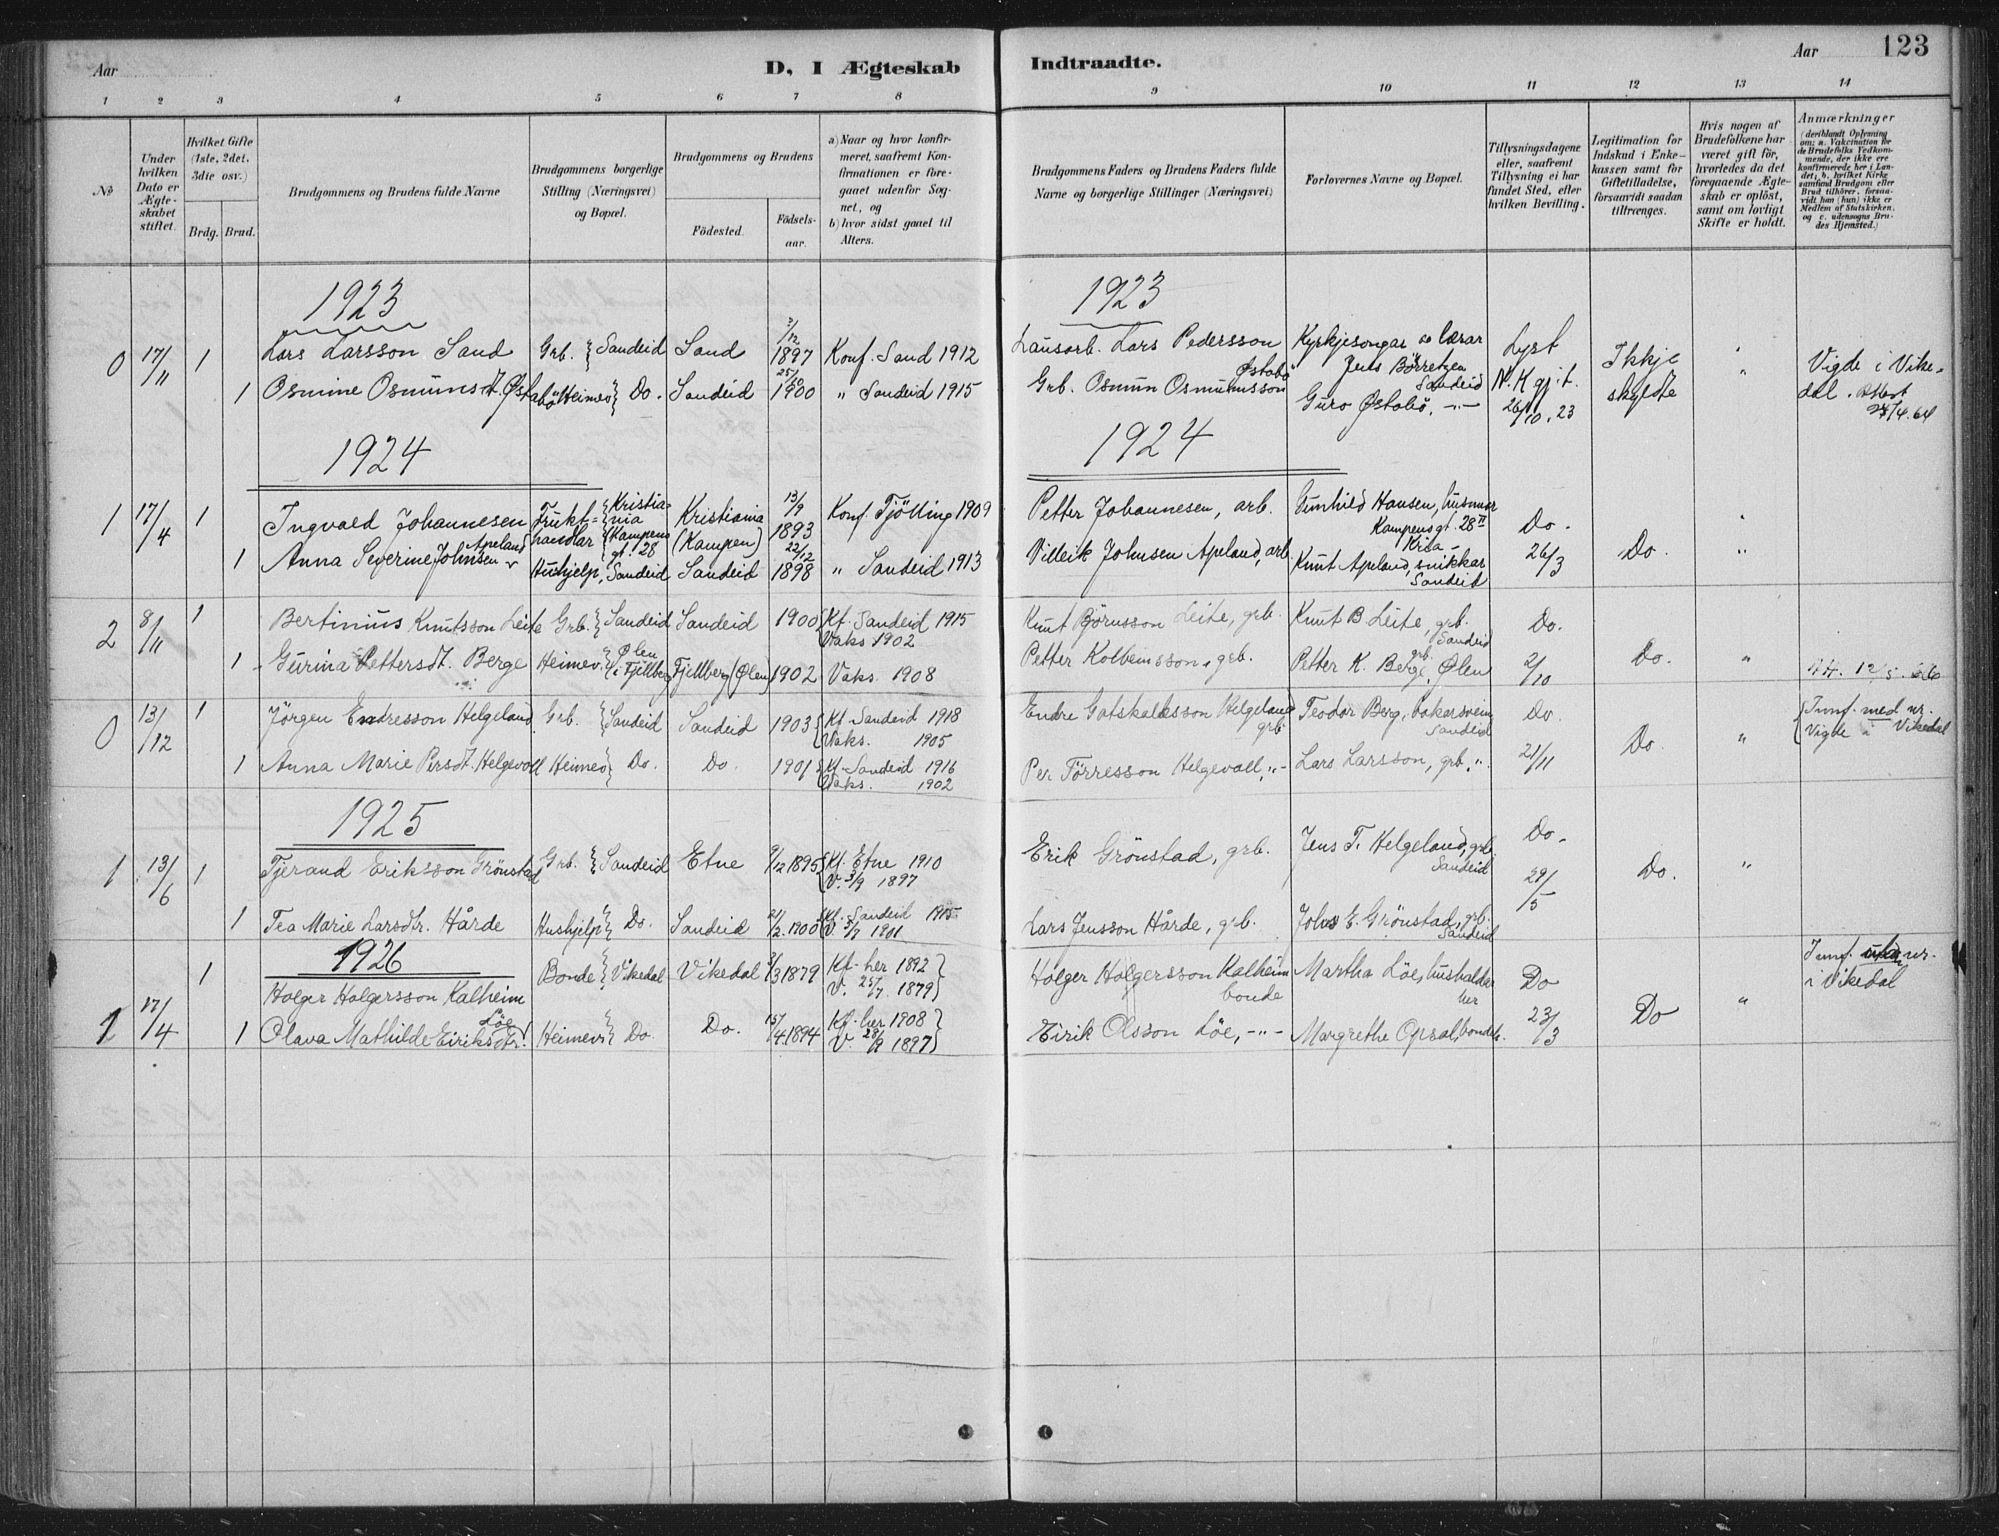 Aar
D, I Ægteskab
Indtraadte.
Aar 123
1 2 3 4 5 6 7 8 9 10 11 12 13 14
No
Under hvilken Dato er Ægteskabet stiftet.
Hvilket Gifte (1ste, 2det, 3die osv.)
Brdg. Brud.
Brudgommens og Brudens fulde Navne
Brudgommens borgerlige Stilling (Næringsvei) og Bopæl.
Brudgommens og Brudens
Födested. Födsels-aar.
a) Naar og hvor konfirmeret, saafremt Konfirmationen er foregaaet udenfor Sognet, og
b) hvor sidst gaaet til Alters.
Brudgommens Faders og Brudens Faders fulde Navne og borgerlige Stillinger (Næringsvei)
Forlovernes Navne og Bopæl.
Tillysningsdagene eller, saafremt Tillysning ei har fundet Sted, efter hvilken Bevilling.
Legitimation for Indskud i Enkekassen samt for Giftetilladelse, forsaavidt saadan tiltrænges.
Hvis nogen af Brudefolkene har været gift för, hvorledes da det foregaaende Ægteskab er oplöst, samt om lovligt Skifte er holdt.
Anmærkninger
(deriblandt Oplysning om: a. Vakcination for de Brudefolks Vedkommende, der ikke ere konfirmerede her i Landet, b. hvilket Kirkesamfund Brudgom eller Brud tilhörer, forsaavidt han (hun) ikke er Medlem af Statskirken, og c. udensogns Brudes Hjemsted.)
1923 1923
0 17/11 1 Lars Larsson Sand Grb. Sandeid Sand 3/12 1897 Konf. Sand 1912 Lausarb. Lars Pedersson Kyrkjesongar og lærar Jens Börretzen Sandeid Lyst Ikkje " Vigde i Vike-
1 Osmine Osmunsdt. Østabö Heimev. Do. Sandeid 25/10 1900 " Sandeid 1915 Grb. Osmun Osmunsson Østabö Guro Østabö, -"- N.K gj. t. 26/10.23 skyldte dal. Attest 24/4.64
1924 1924
1 17/4 1 Ingvald Johannesen Frukthandlar Kristiania Kampens gt. 28 Kristiania (Kampen) 13/9 1893 Konf. Tjölling 1909 Petter Johannesen, arb. Gunhild Hansen, husmor Kampensgt. 28 II Kria Do. "
1 Anna Severine Johnsen Apeland Hushjelp, Sandeid Sandeid 22/12 1898 " Sandeid 1913 Villeik Johnsen Apeland, arb. Knut Apeland, snikkar Sandeid 26/3 Do. "
2 8/11 1 Bertinius Knutsson Leite Grb. Sandeid Sandeid 1900 Kf. Sandeid 1915 Vaks 1902 Knut Björnsson Leite, grb. Knut B Leite, grb. Sandeid Do.
1 Gurina Pettersdt. Berge Heimev. Ølen i Fjellberg Fjellberg (Ølen) 1902 Vaks. 1908 Petter Kolbeinsson, grb. Petter K. Berge, grb. Ølen 2/10 Do. "
0 13/12 1 Jörgen Endresson Helgeland Grb. Sandeid Sandeid 1903 Kf. Sandeid 1918 Vaks. 1905 Endre Gotskalksson Helgeland grb. Teodor Berg, bakarsvein Sandeid Do. Innf. med nr. Vigde i Vikedal
1 Anna Marie Persdt. Helgevoll Heimev Do. Do. 1901 Kf. Sandeid 1916 Vaks. 1902 Per Törresson Helgevoll, "- Lars Larsson, grb. " 21/11 Do. "
1925
1 13/6 1 Tjerand Eriksson Grönstad Grb. Sandeid Etne 9/12 1895 Kf. Etne 1910 V. 3/9 1897 Erik Grönstad, grb. Jens T. Helgeland, grb Sandeid Do. 29/5 Do. "
1 Tea Marie Larsdtr. Hårde Hushjelp Do. Sandeid 21/2 1900 Kf. Sandeid 1915 V. 5/9 1901 Lars Jensson Hårde, grb. Johs E. Grönstad, grb. Sandeid
1926
1 17/4 1 Holger Holgersson Kalheim Bonde Vikedal Vikedal 3/3 1879 Kf. her 1892 V. 25/7 1879 Holger Holgersson Kalheim bonde Martha Löe, hushaldar her Do Innf. utan nr. i Vikedal
1 Olava Mathilde Eiriksdtr. Löe Heimev Do. Do. 15/4 1894 Kf. her 1908 V. 29/9 1897 Eirik Olsson Löe, -"- Margrethe Opsal, bondek. 23/3 Do "